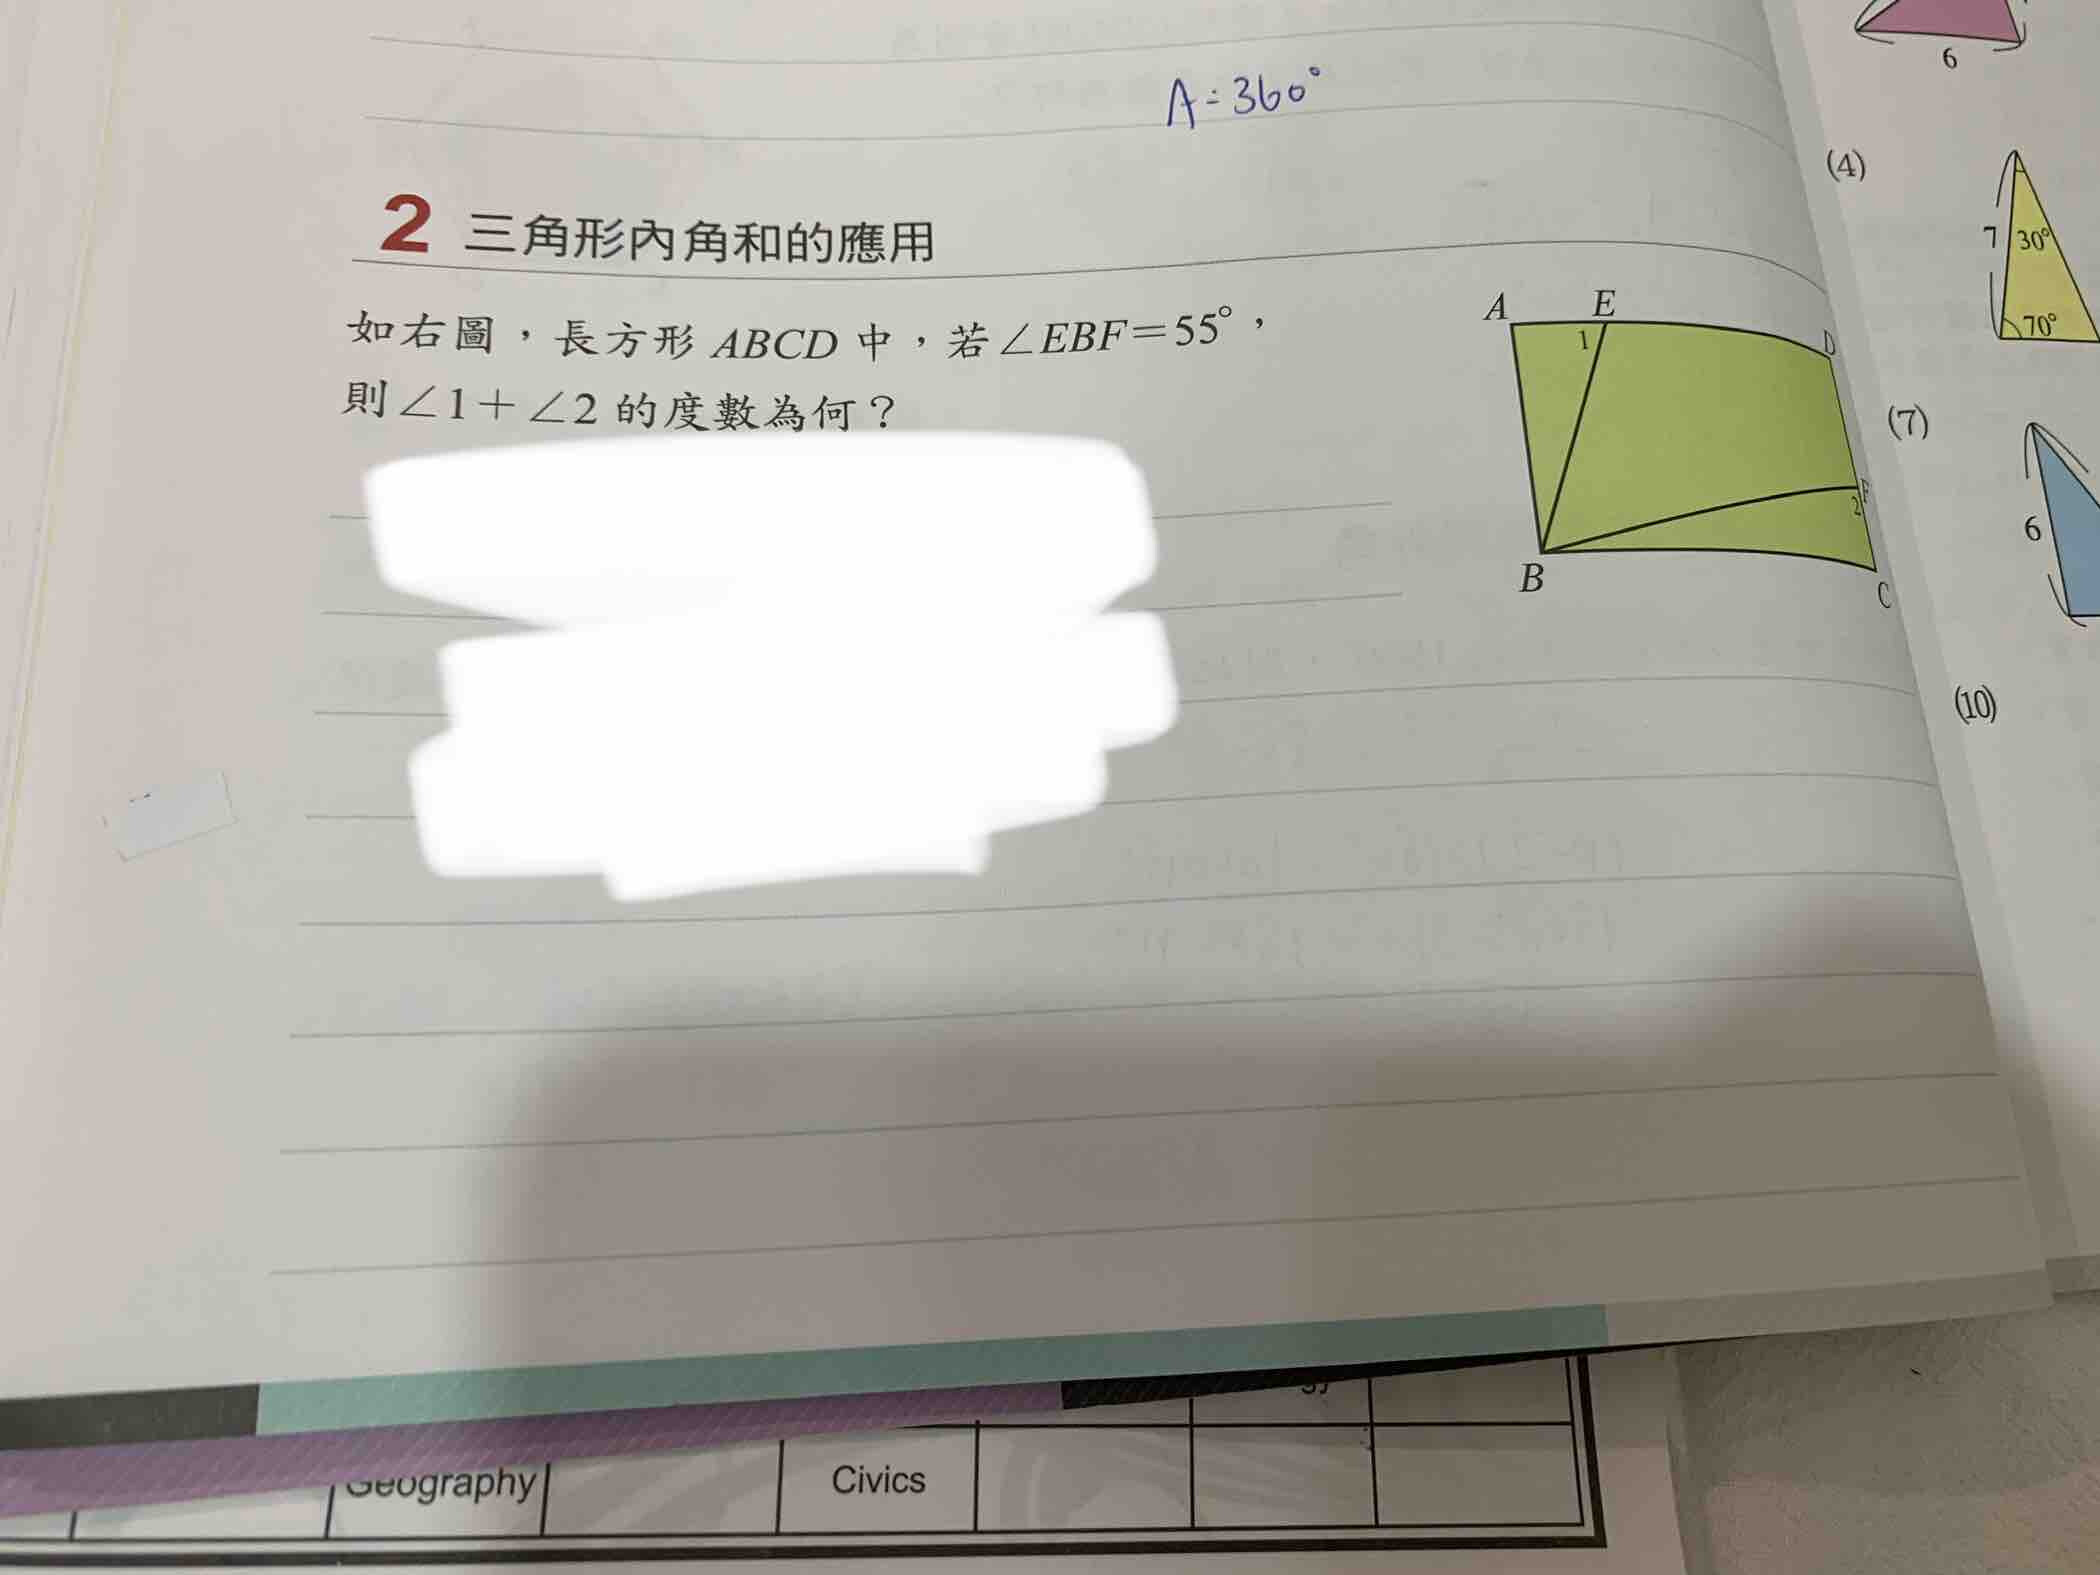 A=360°
2 三角形內角和的應用
如右圖，長方形 ABCD 中，若∠EBF=55°，
則∠1+∠2 的度數為何？
A
E
D
1
F
2
B
C
6
(4)
7
30°
70°
(7)
6
(10)
Geography
Civics